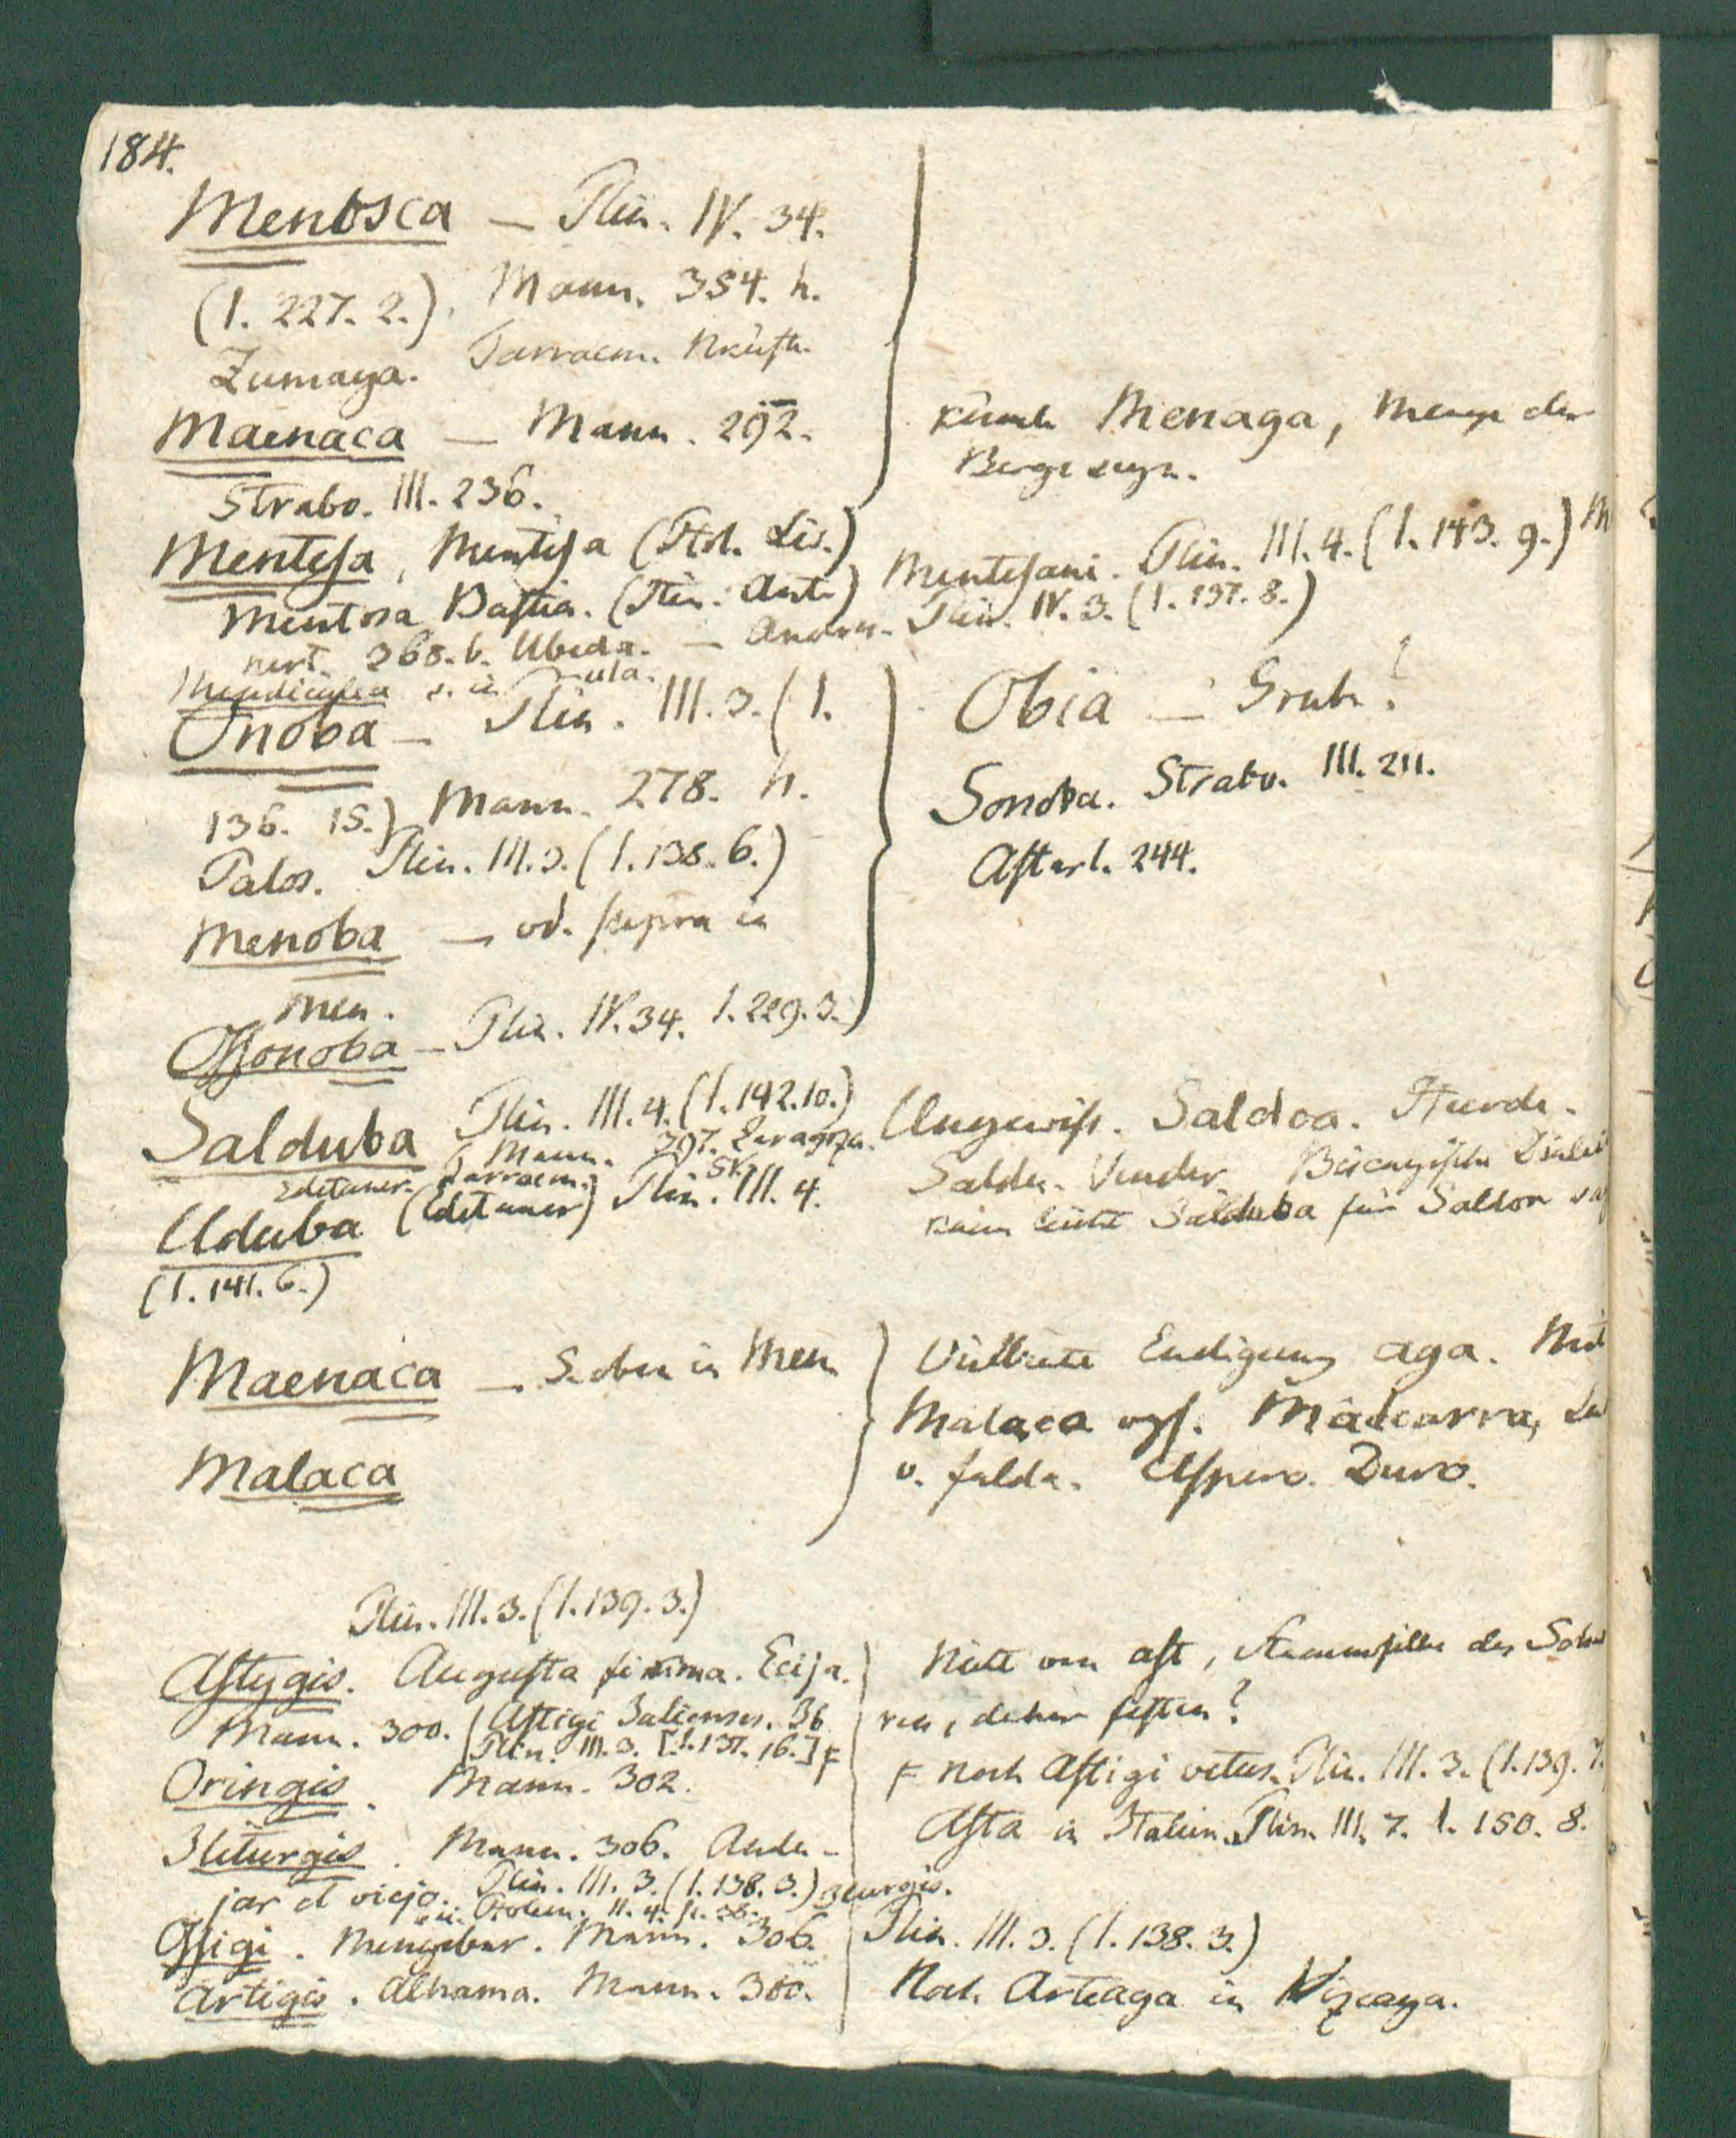 184.
Menosca — Plin. IV. 34.
(I. 227. 2.) Mann. 354. h.
Zumaya. Tarracon. NKüste.
Maenaca — Mann. 292.
Strabo. III. 236.
könnte Menaga, Menge der
Berge seyn.
Mentesa, Mentisa (Ptol. Liv.) Mentesani. Plin. III. 4. (I. 143. 9.)
Mentosa Bastia. (Itin. Ant.) Plin. IV. 3. (I. 137. 8.)
nert. 368. b. Ubeda. —
Mendiculea s. in
Onoba — Plin. III. 3. (I.
136. 15.) Mann. 278. h.
Palos. Plin. III. 3. (I. 138. 6.)
Menoba — vd. supra in
Men.
Ossonoba — Plin. IV. 34. I. 229. 3.
Obia — Grube?
Sonoba. Strabo. III. 211.
Astarl. 244.
Salduba Plin. III. 4. (I. 142. 10.)
Mann. 397. Zaragoza.
Edetaner. Tarracon.
Uduba (Edetaner) Plin. III. 4.
(I. 141. 6.)
Ungewiss. Saldoa. Heerde.
Saldu. Vender. Biscayische
kann leicht Salduba für Saldoa
Maenaca — S. oben in Men
Malaca
Vielleicht Endigung aga. Mit
Malaca vgl. Malcarra,
v. falda. Aspero. Duro.
Plin. III. 3. (I. 139. 3.)
Astygis. Augusta firma. Ecija.
Mann. 300. Astigi Julienses.
Plin. III. 3. [I. 137. 16.] F
Oringis. Mann. 302.
Iliturgis. Mann. 306. Andu-
jar el viejo. Plin. III. 3. (I. 138. 3.)
Ptolem. II. 4. p. 38.
Ossigi. Mengibar. Mann. 306.
Artigis. Alhama. Mann. 300.
Nicht von ast, Stammsilbe des
ren, daher festen?
F noch Astigi vetus. Plin. III. 3. (I. 139. 7.
Asta in Italien. Plin. III. 7. I. 150. 8.
Plin. III. 3. (I. 138. 3.)
Noch Arteaga in Vizcaya.